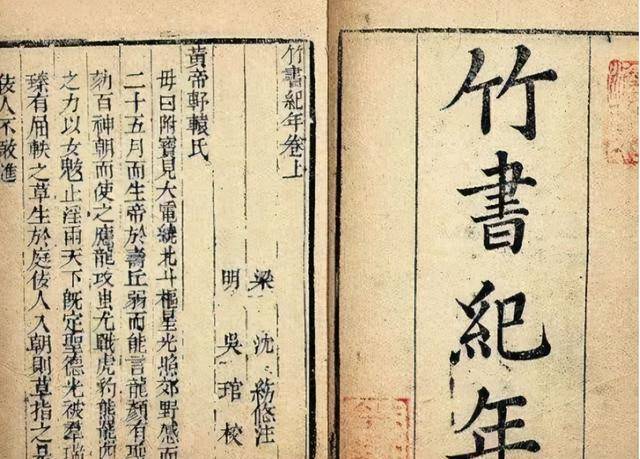 竹書紀年
竹書紀年卷上
梁 沈 注
明 吳 琯 校
黃帝軒轅氏
母曰附寶見大電繞北斗樞星光照郊野感而
二十五月而生帝於壽丘弱而能言龍顏有聖
劾百神朝而使之應龍攻蚩尤戰虎豹熊羆四
之力以女魃止淫雨天下既定聖德光被羣瑞
臻有屈軼之草生於庭佞人入朝則草指之是
佞人不敢進